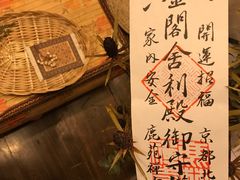 開運招福
京都北
金閣舎利殿御守
家内安全
鹿苑禅